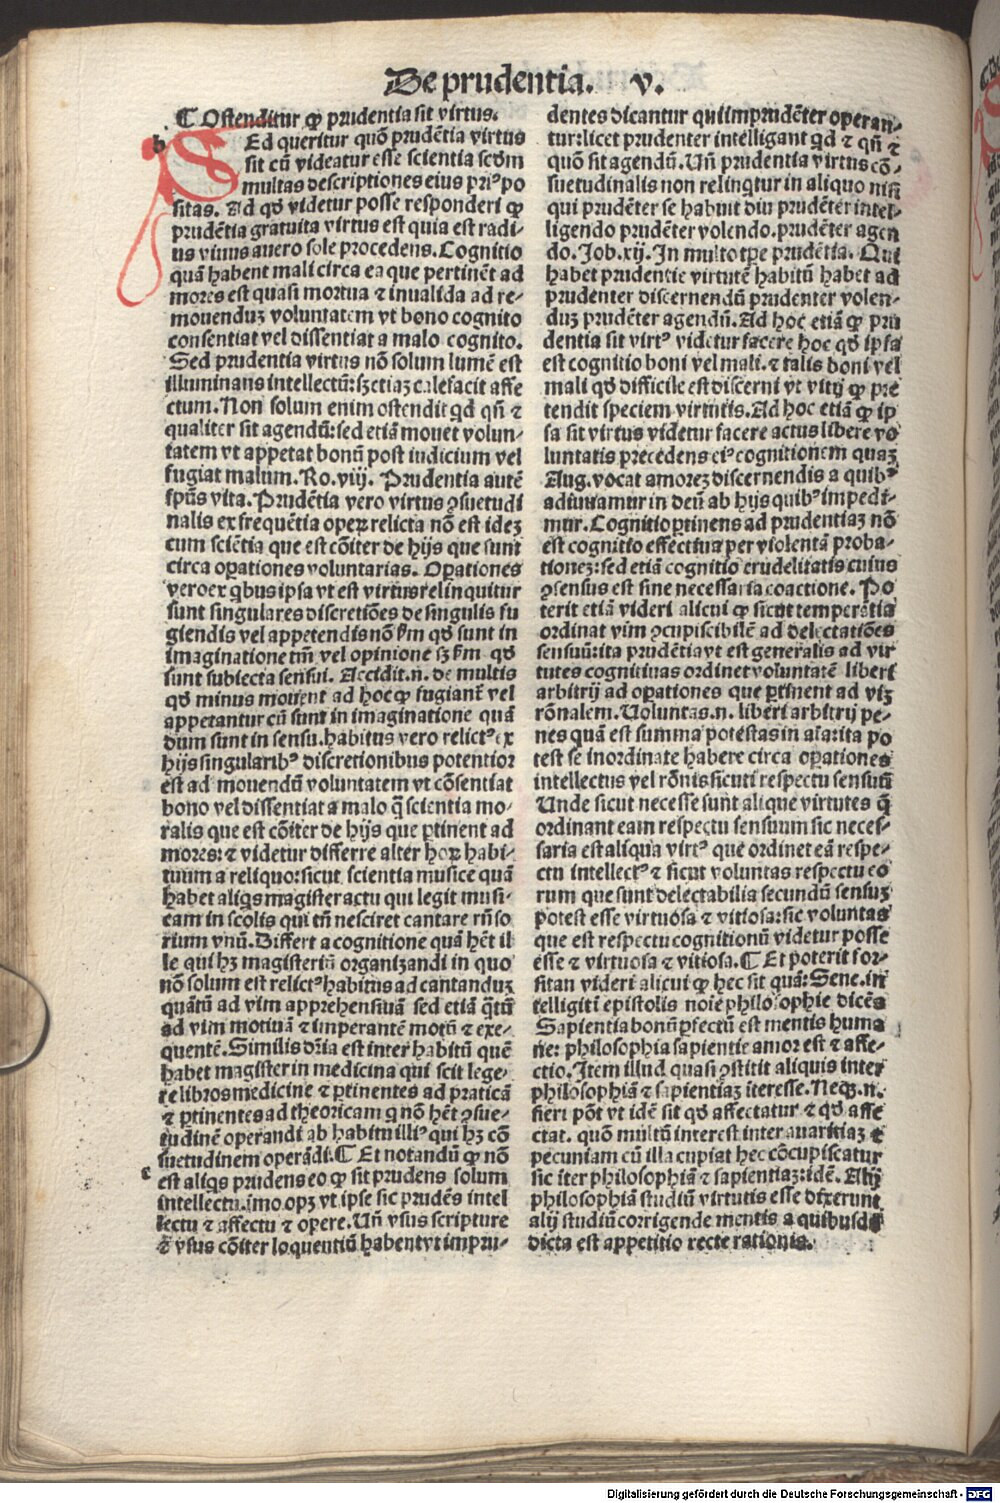 De prudentia. v.
¶ Ostenditur ꝙ prudentia sit virtus.
b
SEd queritur quō prudētia virtus
sit cū videatur esse scientia scḋm
multas descriptiones eius priꝰ po
sitas. Ad qḋ videtur posse responderi ꝙ
prudētia gratuita virtus est quia est radi⸗
us viuus a vero sole procedens. Cognitio
quā habent mali circa ea que pertinēt ad
mores est quasi mortua ⁊ inualida ad re⸗
mouenduꝫ voluntatem vt bono cognito
consentiat vel dissentiat a malo cognito.
Sed prudentia virtus nō solum lumē est
illuminans intellectū: sꝫ etiaꝫ calefacit affe
ctum. Non solum enim ostendit qd qn̄ ⁊
qualiter sit agendū: sed etiā mouet volun⸗
tatem vt appetat bonū post iudicium vel
fugiat malum. Ro. viij. Prudentia autē
sp̄us vita. Prudētia vero virtus ꝯsuetudi
nalis ex frequētia operꝝ relicta nō est ideꝫ
cum sciētia que est cōiter de hijs que sunt
circa oꝑationes voluntarias. Operationes
vero ex qbus ipsa vt est virtus relinquitur
sunt singulares discretiōes de singulis fu
giendis vel appetendis nō ẜm qḋ sunt in
imaginatione tm̄ vel opinione sꝫ ẜm qḋ
sunt subiecta sensui. Accidit .n. de multis
qḋ minus mouent ad hoc ꝙ fugiant᷑ vel
appetantur cū sunt in imaginatione quā
dum sunt in sensu. habitus vero relictꝰ ex
hijs singularibꝰ discretionibus potentior
est ad mouendū voluntatem vt cōsentiat
bono vel dissentiat a malo q̄ scientia mo⸗
ralis que est cōiter de hijs que ꝑtinent ad
mores: ⁊ videtur differre alter horꝝ habi⸗
tuum a reliquo: sicut scientia musice quā
habet aliqs magister actu qui legit musi⸗
cam in scolis qui tn̄ nesciret cantare rn̄so
rium vnū. Differt a cognitione quā hēt il
le qui hꝫ magisteriū organizandi in quo
nō solum est relictꝰ habitus ad cantanduꝫ
quātū ad vim apprehensiuā sed etiā q̄tū
ad vim motiuā ⁊ imperantē motū ⁊ exe⸗
quentē. Similis dr̄ia est inter habitū quē
habet magister in medicina qui scit lege⸗
re libros medicine ⁊ ꝑtinentes ad praticā
⁊ ꝑtinentes ad theoricam q nō hēt ꝯsue⸗
tudinē operandi ab habitu illiꝰ qui hꝫ cō
suetudinem operādi. ¶ Et notandū ꝙ nō
c
est aliqs prudens eo ꝙ sit prudens solum
intellectu. imo opꝫ vt ipse sic prudēs intel
lectu ⁊ affectu ⁊ opere. Un̄ vsus scripture
⁊ vsus cōiter loquentiū habent vt impru⸗
dentes dicantur qui imprudēter operan⸗
tur: licet prudenter intelligant qd ⁊ qn̄ ⁊
quō sit agendū. Un̄ prudentia virtus cō⸗
suetudinalis non relinqtur in aliquo nisi
qui prudēter se habuit diu prudēter intel⸗
ligendo prudēter volendo. prudēter agen
do. Job. xij. In multo tꝑe prudētia. Qui
habet prudentie virtutē habitū habet ad
prudenter discernendū prudenter volen⸗
duꝫ prudēter agendū. Ad hoc etiā ꝙ pru
dentia sit virtꝰ videtur facere hoc qḋ ipsa
est cognitio boni vel mali. ⁊ talis boni vel
mali qḋ difficile est discerni vt vitij ꝙ pre
tendit speciem virtutis. Ad hoc etiā ꝙ ip
sa sit virtus videtur facere actus libere vo
luntatis precedens eiꝰ cognitionem quaꝫ
Aug. vocat amoreꝫ discernendis a quibꝰ
adiuuamur in deū ab hijs quibꝰ impedi⸗
mur. Cognitio ꝑtinens ad prudentiaꝫ nō
est cognitio effectiua per violentā proba⸗
tioneꝫ: sed etiā cognitio crudelitatis cuius
ꝯsensus est sine necessaria coactione. Po
terit etiā videri alicui ꝙ sicut temperātia
ordinat vim ꝯcupiscibilē ad delectatiōes
sensuū: ita prudētia vt est generalis ad vir
tutes cognitiuas ordinet voluntatē liberi
arbitrij ad oꝑationes que ꝑtinent ad viꝫ
rōnalem. Uoluntas .n. liberi arbitrij pe⸗
nes quā est summa potestas in aīarita po
test se inordinate habere circa oꝑationes
intellectus vel rōnis sicuti respectu sensuū
Unde sicut necesse sunt alique virtutes q̄
ordinant eam respectu sensuum sic neces⸗
saria est aliqua virtꝰ que ordinet eā respe⸗
ctu intellectꝰ ⁊ sicut voluntas respectu eo
rum que sunt delectabilia secundū sensuꝫ
potest esse virtuosa ⁊ vitiosa: sic voluntas
que est respectu cognitionū videtur posse
esse ⁊ virtuosa ⁊ vitiosa. ¶ Et poterit for⸗
sitan videri alicui ꝙ hec sit quā: Sene. in
telligiti epistolis noīe philosophie dicēs
Sapientia bonū ꝑfectū est mentis huma
ne: philosophia sapientie amor est ⁊ affe⸗
ctio. Item illud quasi ꝯstitit aliquis inter
philosophiā ⁊ sapientiaꝫ īteresse. Neqꝫ .n.
fieri pōt vt idē sit qḋ affectatur ⁊ qḋ affe
ctat. quō multū interest inter auaritiaꝫ ⁊
pecuniam cū illa cupiat hec cōcupiscatur
sic īter philosophiā ⁊ sapientiaꝫ: idē. Alij
philosophiā studiū virtutis esse dixerunt
alij studiū corrigende mentis a quibusdā
dicta est appetitio recte rationis.
Digitalisierung gefördert durch die Deutsche Forschungsgemeinschaft - DFG